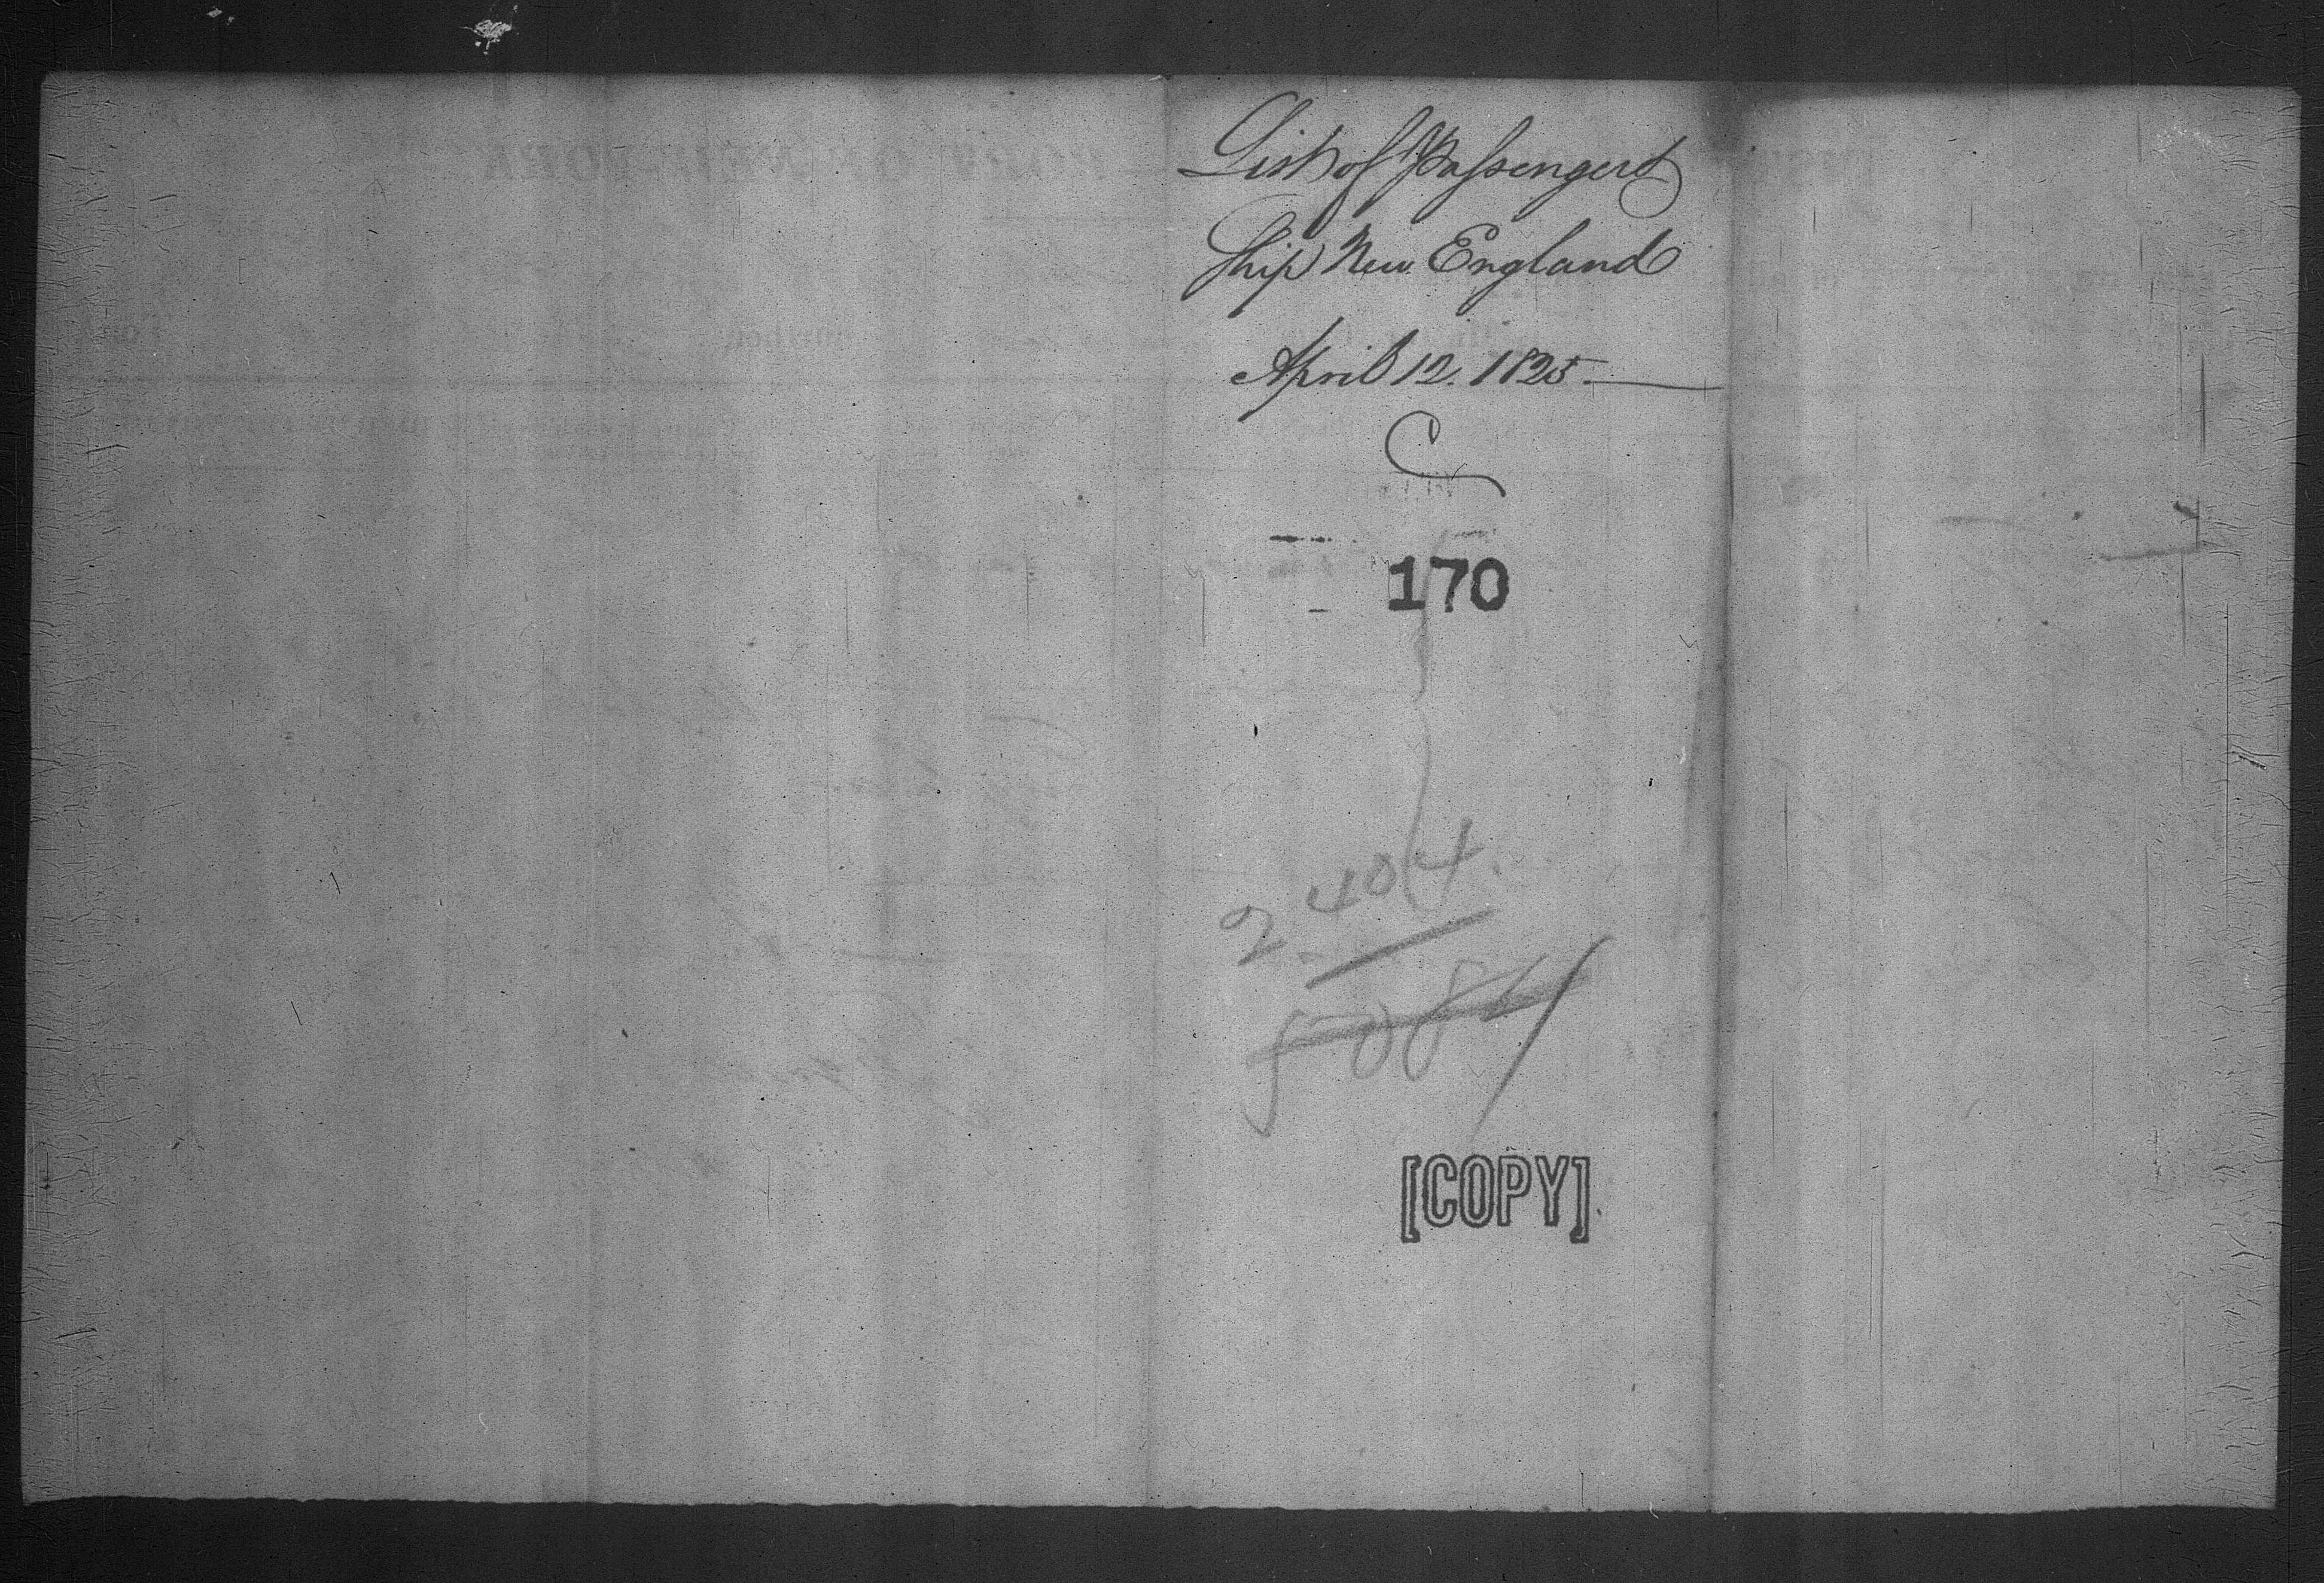 List of Passengers
Ship New England
April 12. 1825.
C
170
2 404.
[COPY]